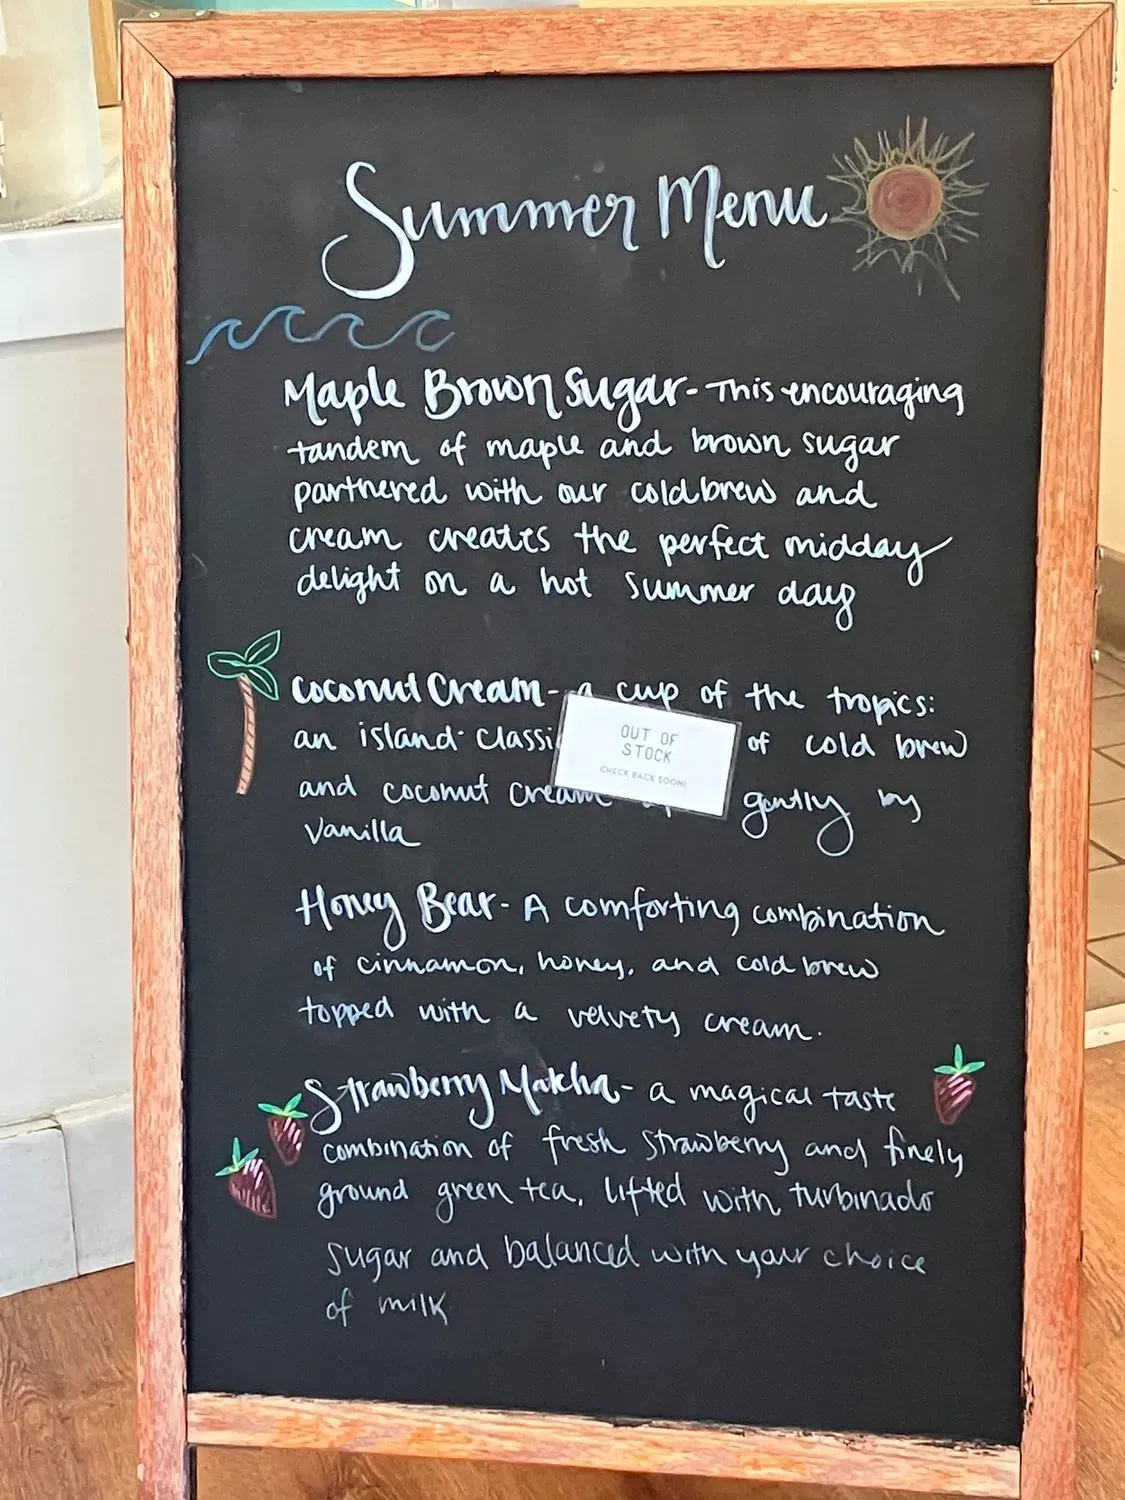 Summer Menu
Maple Brown Sugar - This encouraging
tandem of maple and brown sugar
parthered with our cold brew and
cream creates the perfect midday
delight on a hot summer day
Coconut Cream - a cup of the tropics:
an island classi of cold brew
OUT OF
STOCK
CHECK BACK SOON!
and coconut cream gently by
vanilla
Honey Bear - A comforting combination
of cinnamon, honey, and cold brew
topped with a velvety cream.
Strawberry Matcha - a magical taste
combination of fresh strawberry and finely
ground green tea, lifted with turbinado
sugar and balanced with your choice
of milk